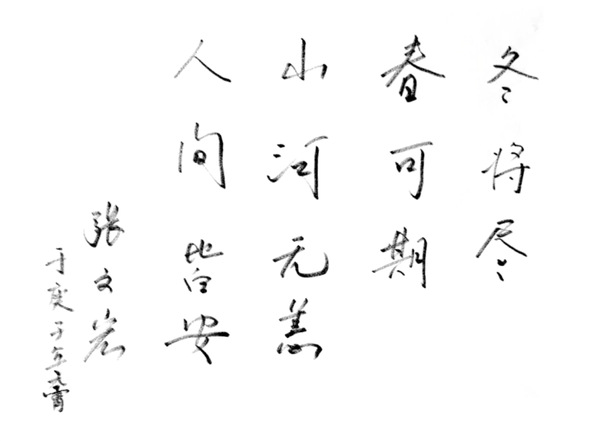 冬将尽
春可期
山河无恙
人间皆安
张文宏
于庚子年元宵